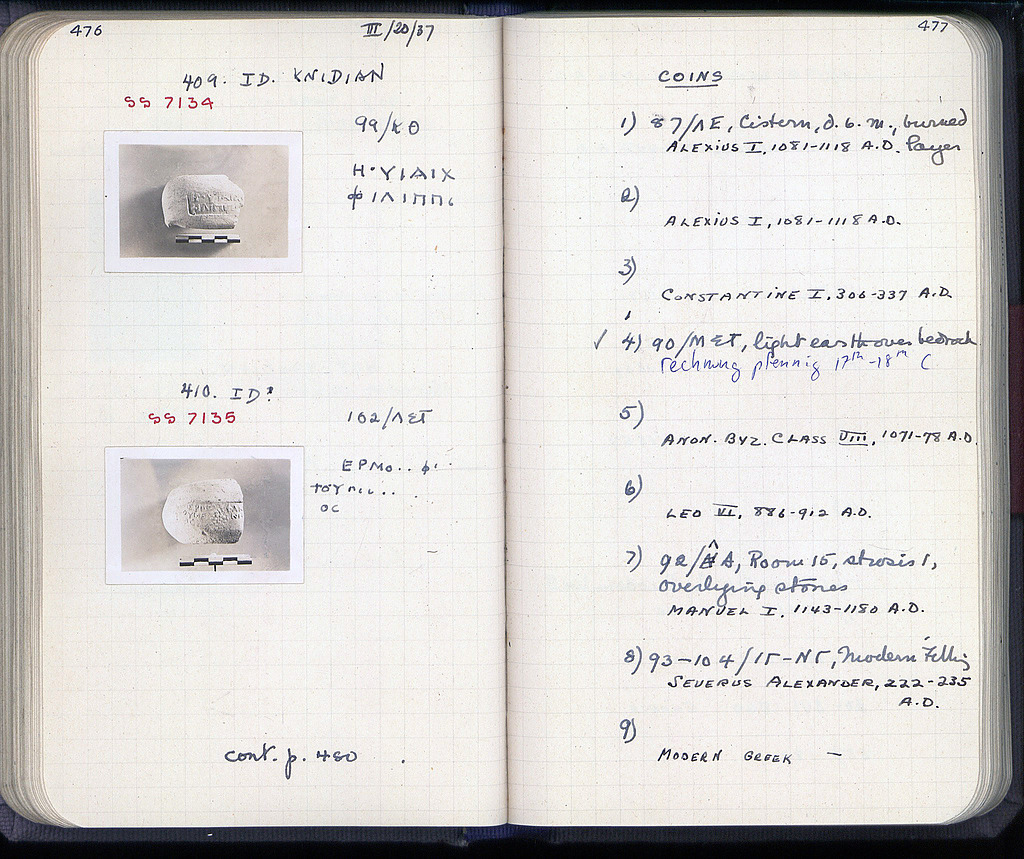 476
III/20/37
409. ID. KNIDIAN
SS 7134
99/ΚΘ
Η·ΥΙΑΙΧ
ΦΙΛΙΠΠ
410. ID?
SS 7135
102/ΛΣΤ
ΕΡΜΟ..φ'..
ΤΟΥ
ΟC
cont. p. 480
477
COINS
1) 87/ΛΕ, Cistern, d. 6. m., burned
layer
ALEXIUS I, 1081-1118 A.D.
2)
ALEXIUS I, 1081-1118 A.D.
3)
CONSTANTINE I, 306-337 A.D.
✓ 4) 90/ΜΣΤ, light earth over bedrock
rechnung pfennig 17th-18th C
5)
ANON. BYZ. CLASS VIII, 1071-78 A.D.
6)
LEO VI, 886-912 A.D.
7) 92/ΛΑ, Room 15, strosis 1,
overlying stones
MANUEL I, 1143-1180 A.D.
8) 93-104/ΙΓ-ΝΓ, Modern Filling
SEVERUS ALEXANDER, 222-235
A.D.
9)
MODERN GREEK —